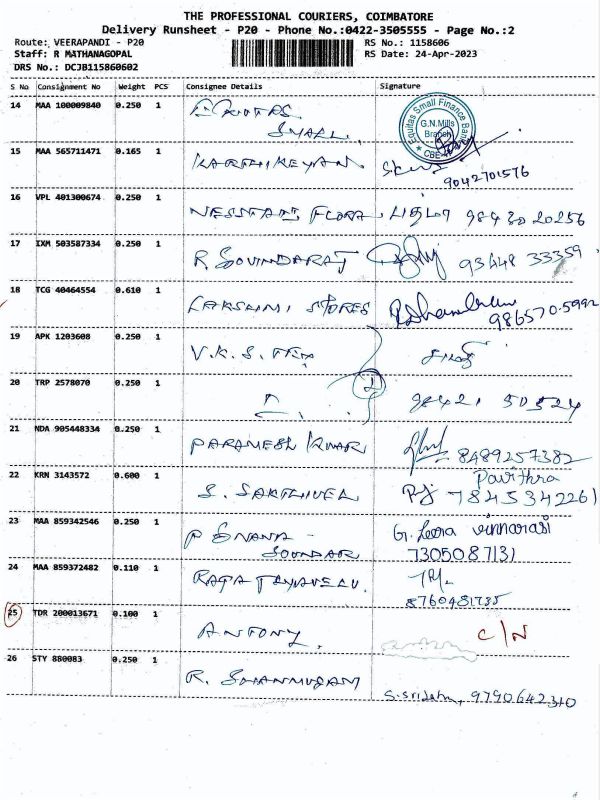 THE PROFESSIONAL COURIERS, COIMBATORE
Delivery Runsheet - P20 - Phone No.:0422-3505555 - Page No.:2
Route: VEERAPANDI - P20 RS No.: 1158606
Staff: R MATHANAGOPAL RS Date: 24-Apr-2023
DRS No.: DCJB115860602
S No Consignment No Weight PCS Consignee Details Signature
14 MAA 100009840 0.250 1 EQUITAS SMALL Equitas Small Finance Bank G.N.Mills Branch CBE
15 MAA 565711471 0.165 1 KARTHIKEYAN 9042701576
16 VPL 401300674 0.250 1 FLORA 984 30 20256
17 IXM 503587334 0.250 1 R. GOVINDARAJ 93448 33359
18 TCG 40464554 0.610 1 LAKSHMI STORES 986570.5992
19 APK 1203608 0.250 1 V.K.S. TEX
20 TRP 2578070 0.250 1 2 98421 50524
21 NDA 905448334 0.250 1 PARAMESH KUMAR 8489257382
22 KRN 3143572 0.600 1 S. SAKTHIVEL Pavithra 7845342261
23 MAA 859342546 0.250 1 P GNANA - SOUNDAR G. Leera vinnarasi 7305087131
24 MAA 859372482 0.110 1 RAJA 8760481785
25 TDR 200013671 0.100 1 ANTONY. C/N
26 STY 880083 0.250 1 R. SHANMUGAM 9790642310